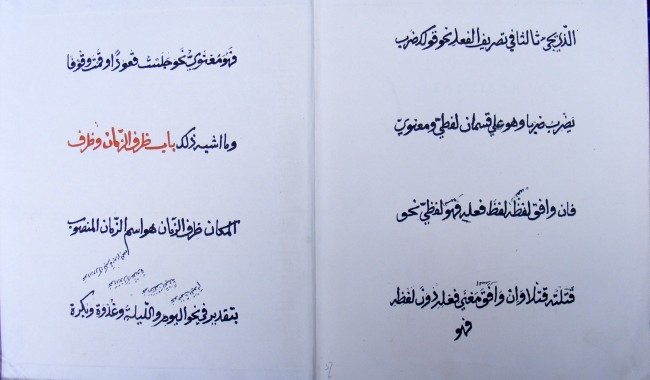 الذي يجيء ثالثا في تصريف الفعل نحو قولك ضرب
يضرب ضربا وهو على قسمان لفظيّ ومعنويّ
فان وافق لفظه لفظ فعله فهو لفظيّ نحو
قتلته قتلا وان وافق معنى فعله دون لفظه
فهو
فهو معنويّ نحو جلست قعودا وقمت وقوفا
وما اشبه ذلك باب ظرف الزمان وظرف
المكان ظرف الزمان هو اسم الزمان المنصوب
بتقدير في نحو اليوم والليلة وغدوة وبكرة